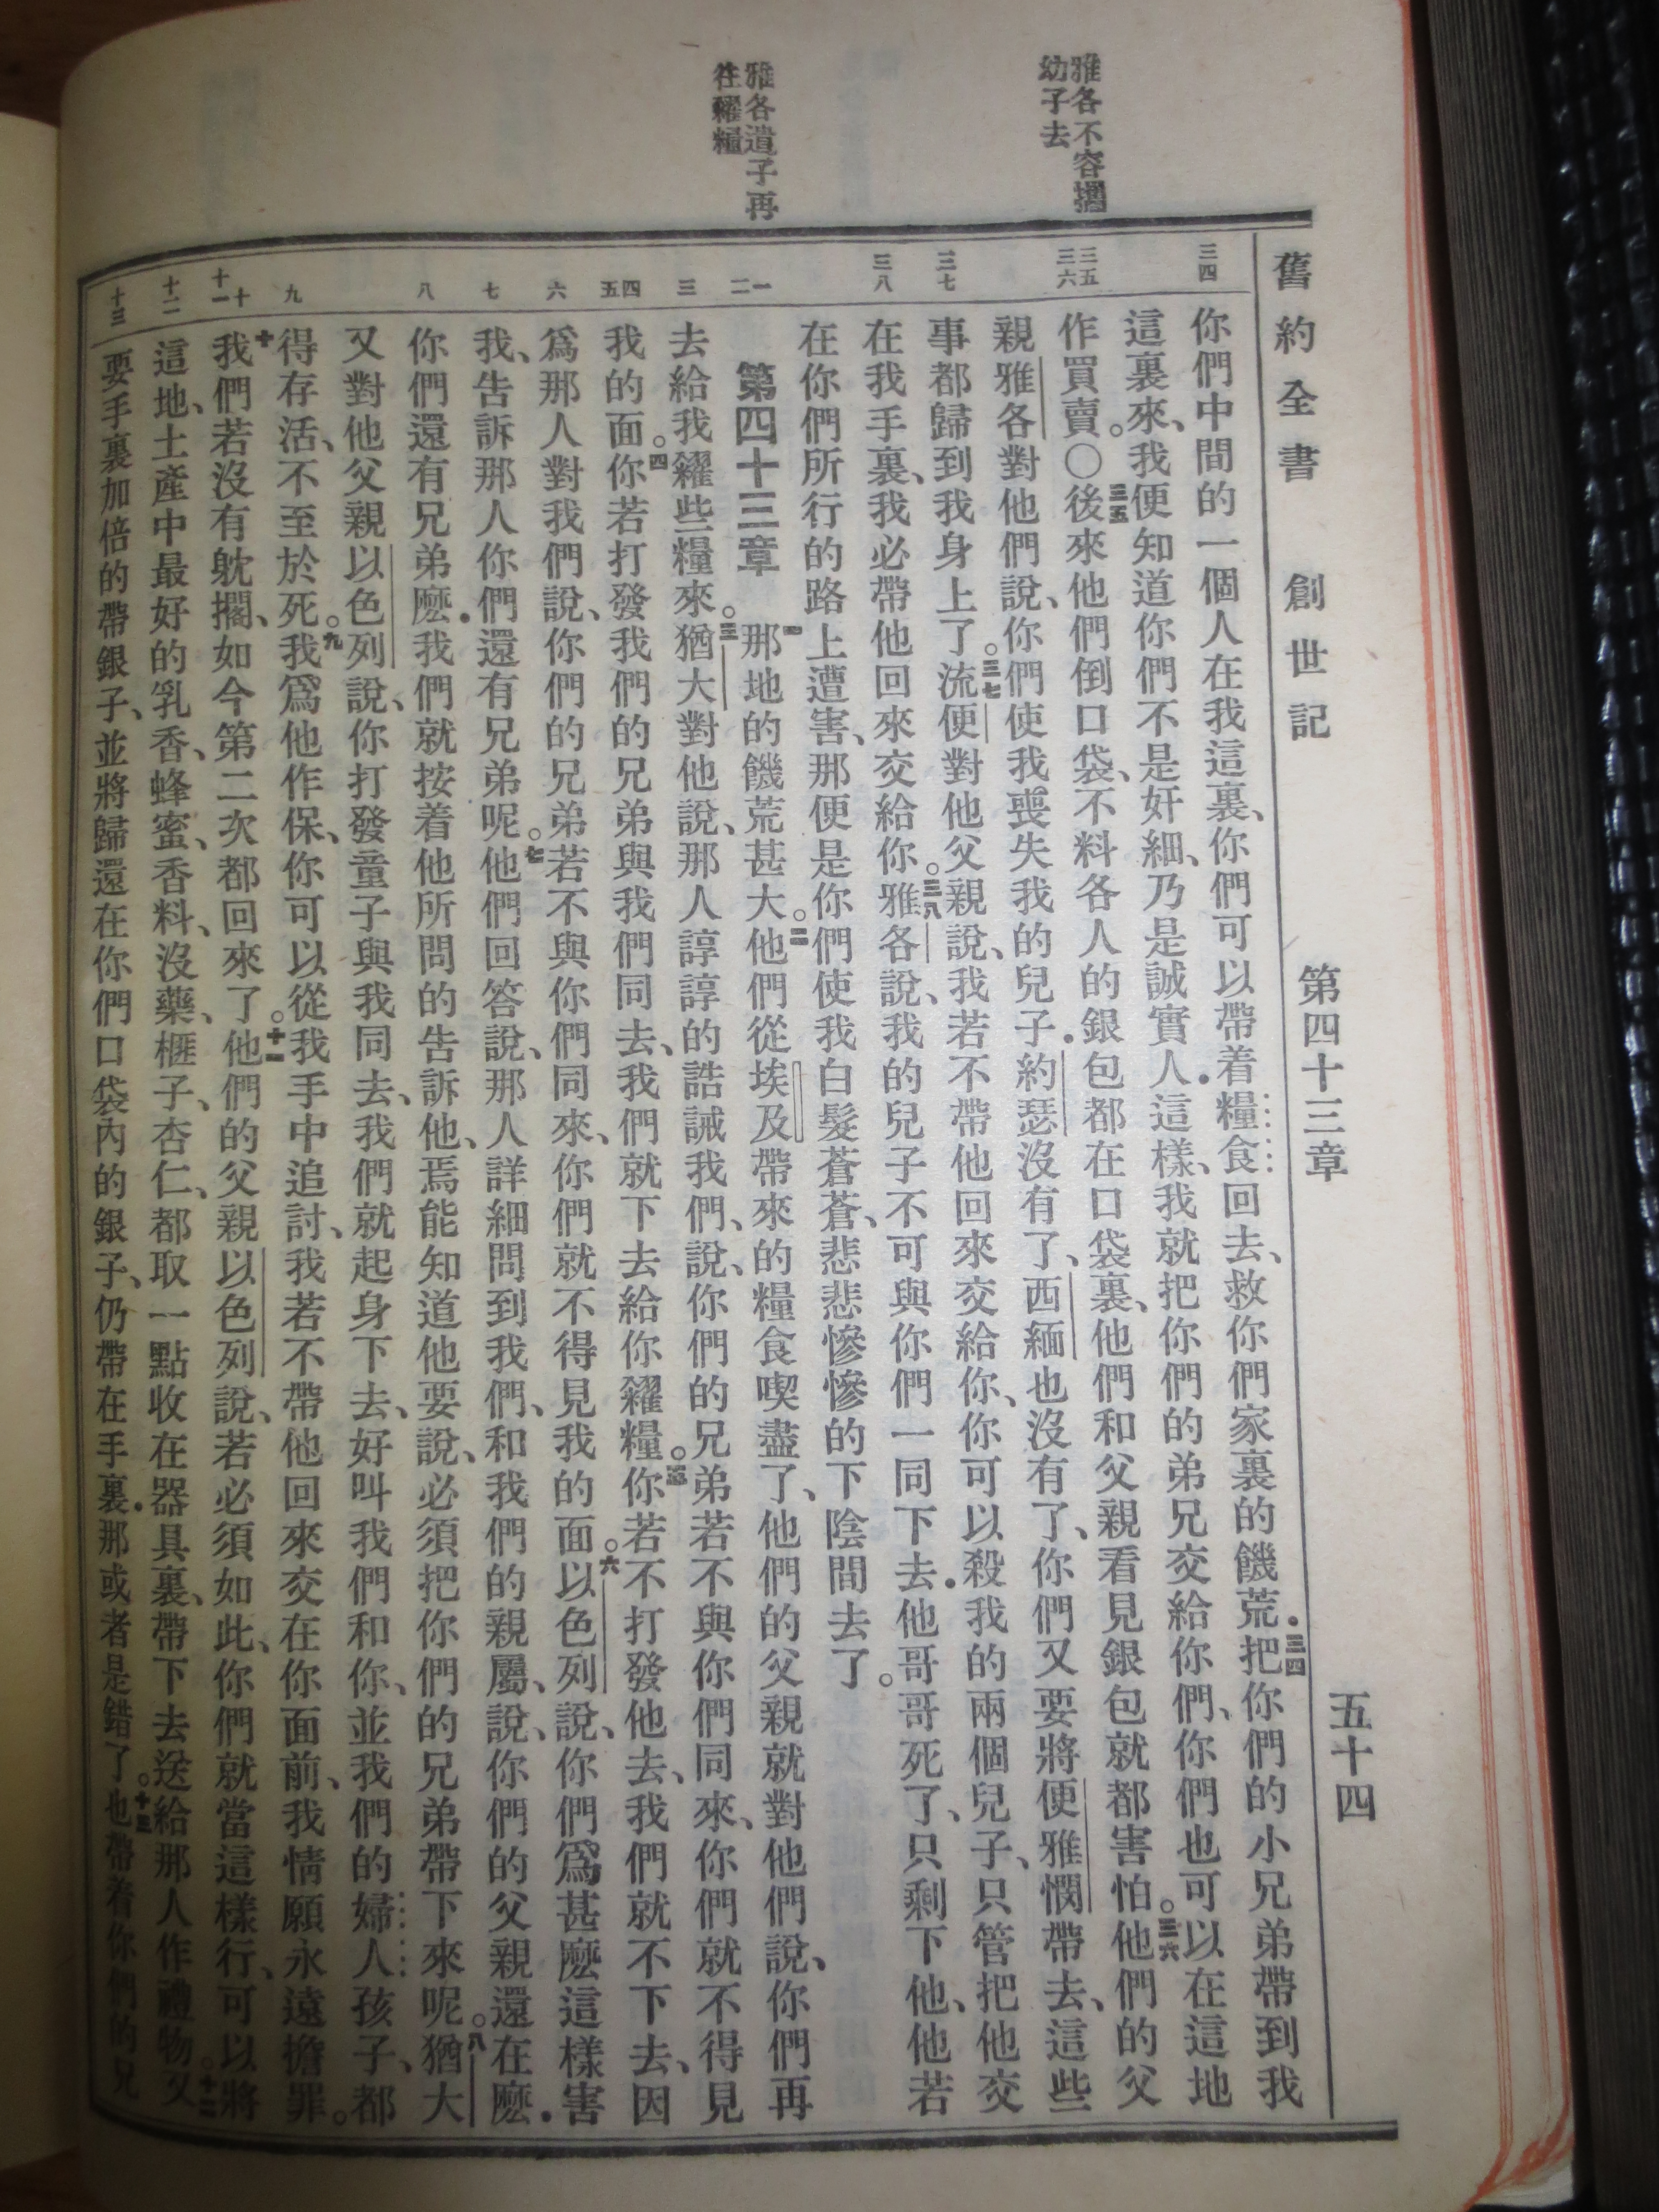 舊約全書 創世記 第四十三章 五十四
雅各不容攜
幼子去
雅各遣子再
往糴糧
三四
三五
三六
三七
三八
一
二
三
四
五
六
七
八
九
十
十一
十二
十三
你們中間的一個人在我這裏、你們可以帶着糧食回去、救你們家裏的饑荒．三四把你們的小兄弟帶到我
這裏來、我便知道你們不是奸細、乃是誠實人．這樣、我就把你們的弟兄交給你們、你們也可以在這地
作買賣。〇三五後來他們倒口袋、不料各人的銀包都在口袋裏、他們和父親看見銀包就都害怕。三六他們的父
親雅各對他們說、你們使我喪失我的兒子．約瑟沒有了、西緬也沒有了、你們又要將便雅憫帶去、這些
事都歸到我身上了。三七流便對他父親說、我若不帶他回來交給你、你可以殺我的兩個兒子、只管把他交
在我手裏、我必帶他回來交給你。三八雅各說、我的兒子不可與你們一同下去．他哥哥死了、只剩下他、他若
在你們所行的路上遭害、那便是你們使我白髮蒼蒼、悲悲慘慘的下陰間去了。
第四十三章 一那地的饑荒甚大。二他們從埃及帶來的糧食喫盡了、他們的父親就對他們說、你們再
去給我糴些糧來。三猶大對他說、那人諄諄的誥誡我們、說、你們的兄弟若不與你們同來、你們就不得見
我的面。四你若打發我們的兄弟與我們同去、我們就下去給你糴糧。五你若不打發他去、我們就不下去、因
爲那人對我們說、你們的兄弟若不與你們同來、你們就不得見我的面。六以色列說、你們爲甚麼這樣害
我、告訴那人你們還有兄弟呢。七他們回答說、那人詳細問到我們、和我們的親屬、說、你們的父親還在麼．
你們還有兄弟麼．我們就按着他所問的告訴他、焉能知道他要說、必須把你們的兄弟帶下來呢。八猶大
又對他父親以色列說、你打發童子與我同去、我們就起身下去、好叫我們和你、並我們的婦人孩子、都
得存活、不至於死。九我爲他作保、你可以從我手中追討、我若不帶他回來交在你面前、我情願永遠擔罪。
十我們若沒有躭擱、如今第二次都回來了。十一他們的父親以色列說、若必須如此、你們就當這樣行、可以將
這地土產中最好的乳香、蜂蜜、香料、沒藥、榧子、杏仁、都取一點收在器具裏、帶下去送給那人作禮物。十二又
要手裏加倍的帶銀子、並將歸還在你們口袋內的銀子、仍帶在手裏．那或者是錯了。十三也帶着你們的兄